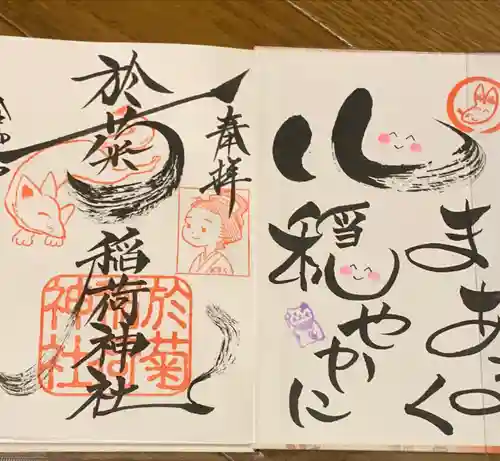 まあるく
心穏やかに
奉拝
於菊稲荷神社
於菊
稲荷
神社